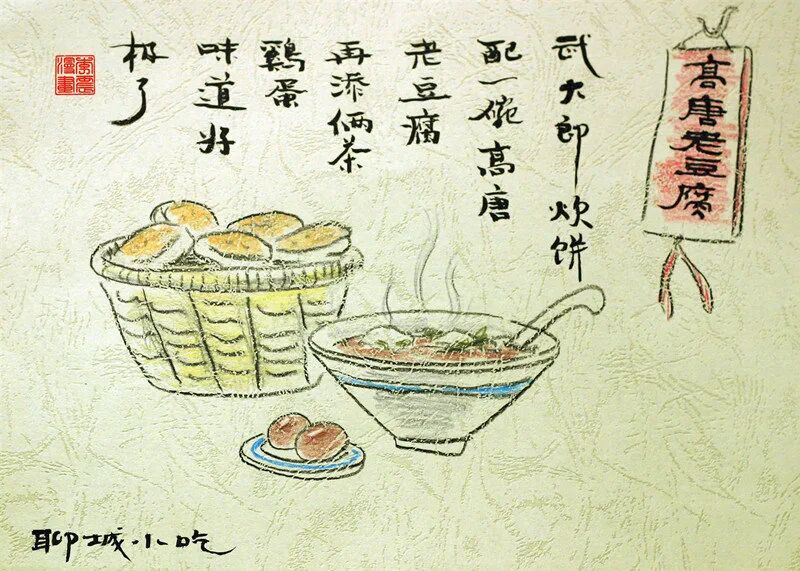 高唐老豆腐
武大郎炊饼
配一碗高唐
老豆腐
再添俩茶
鷄蛋
味道好
极了
聊城小吃